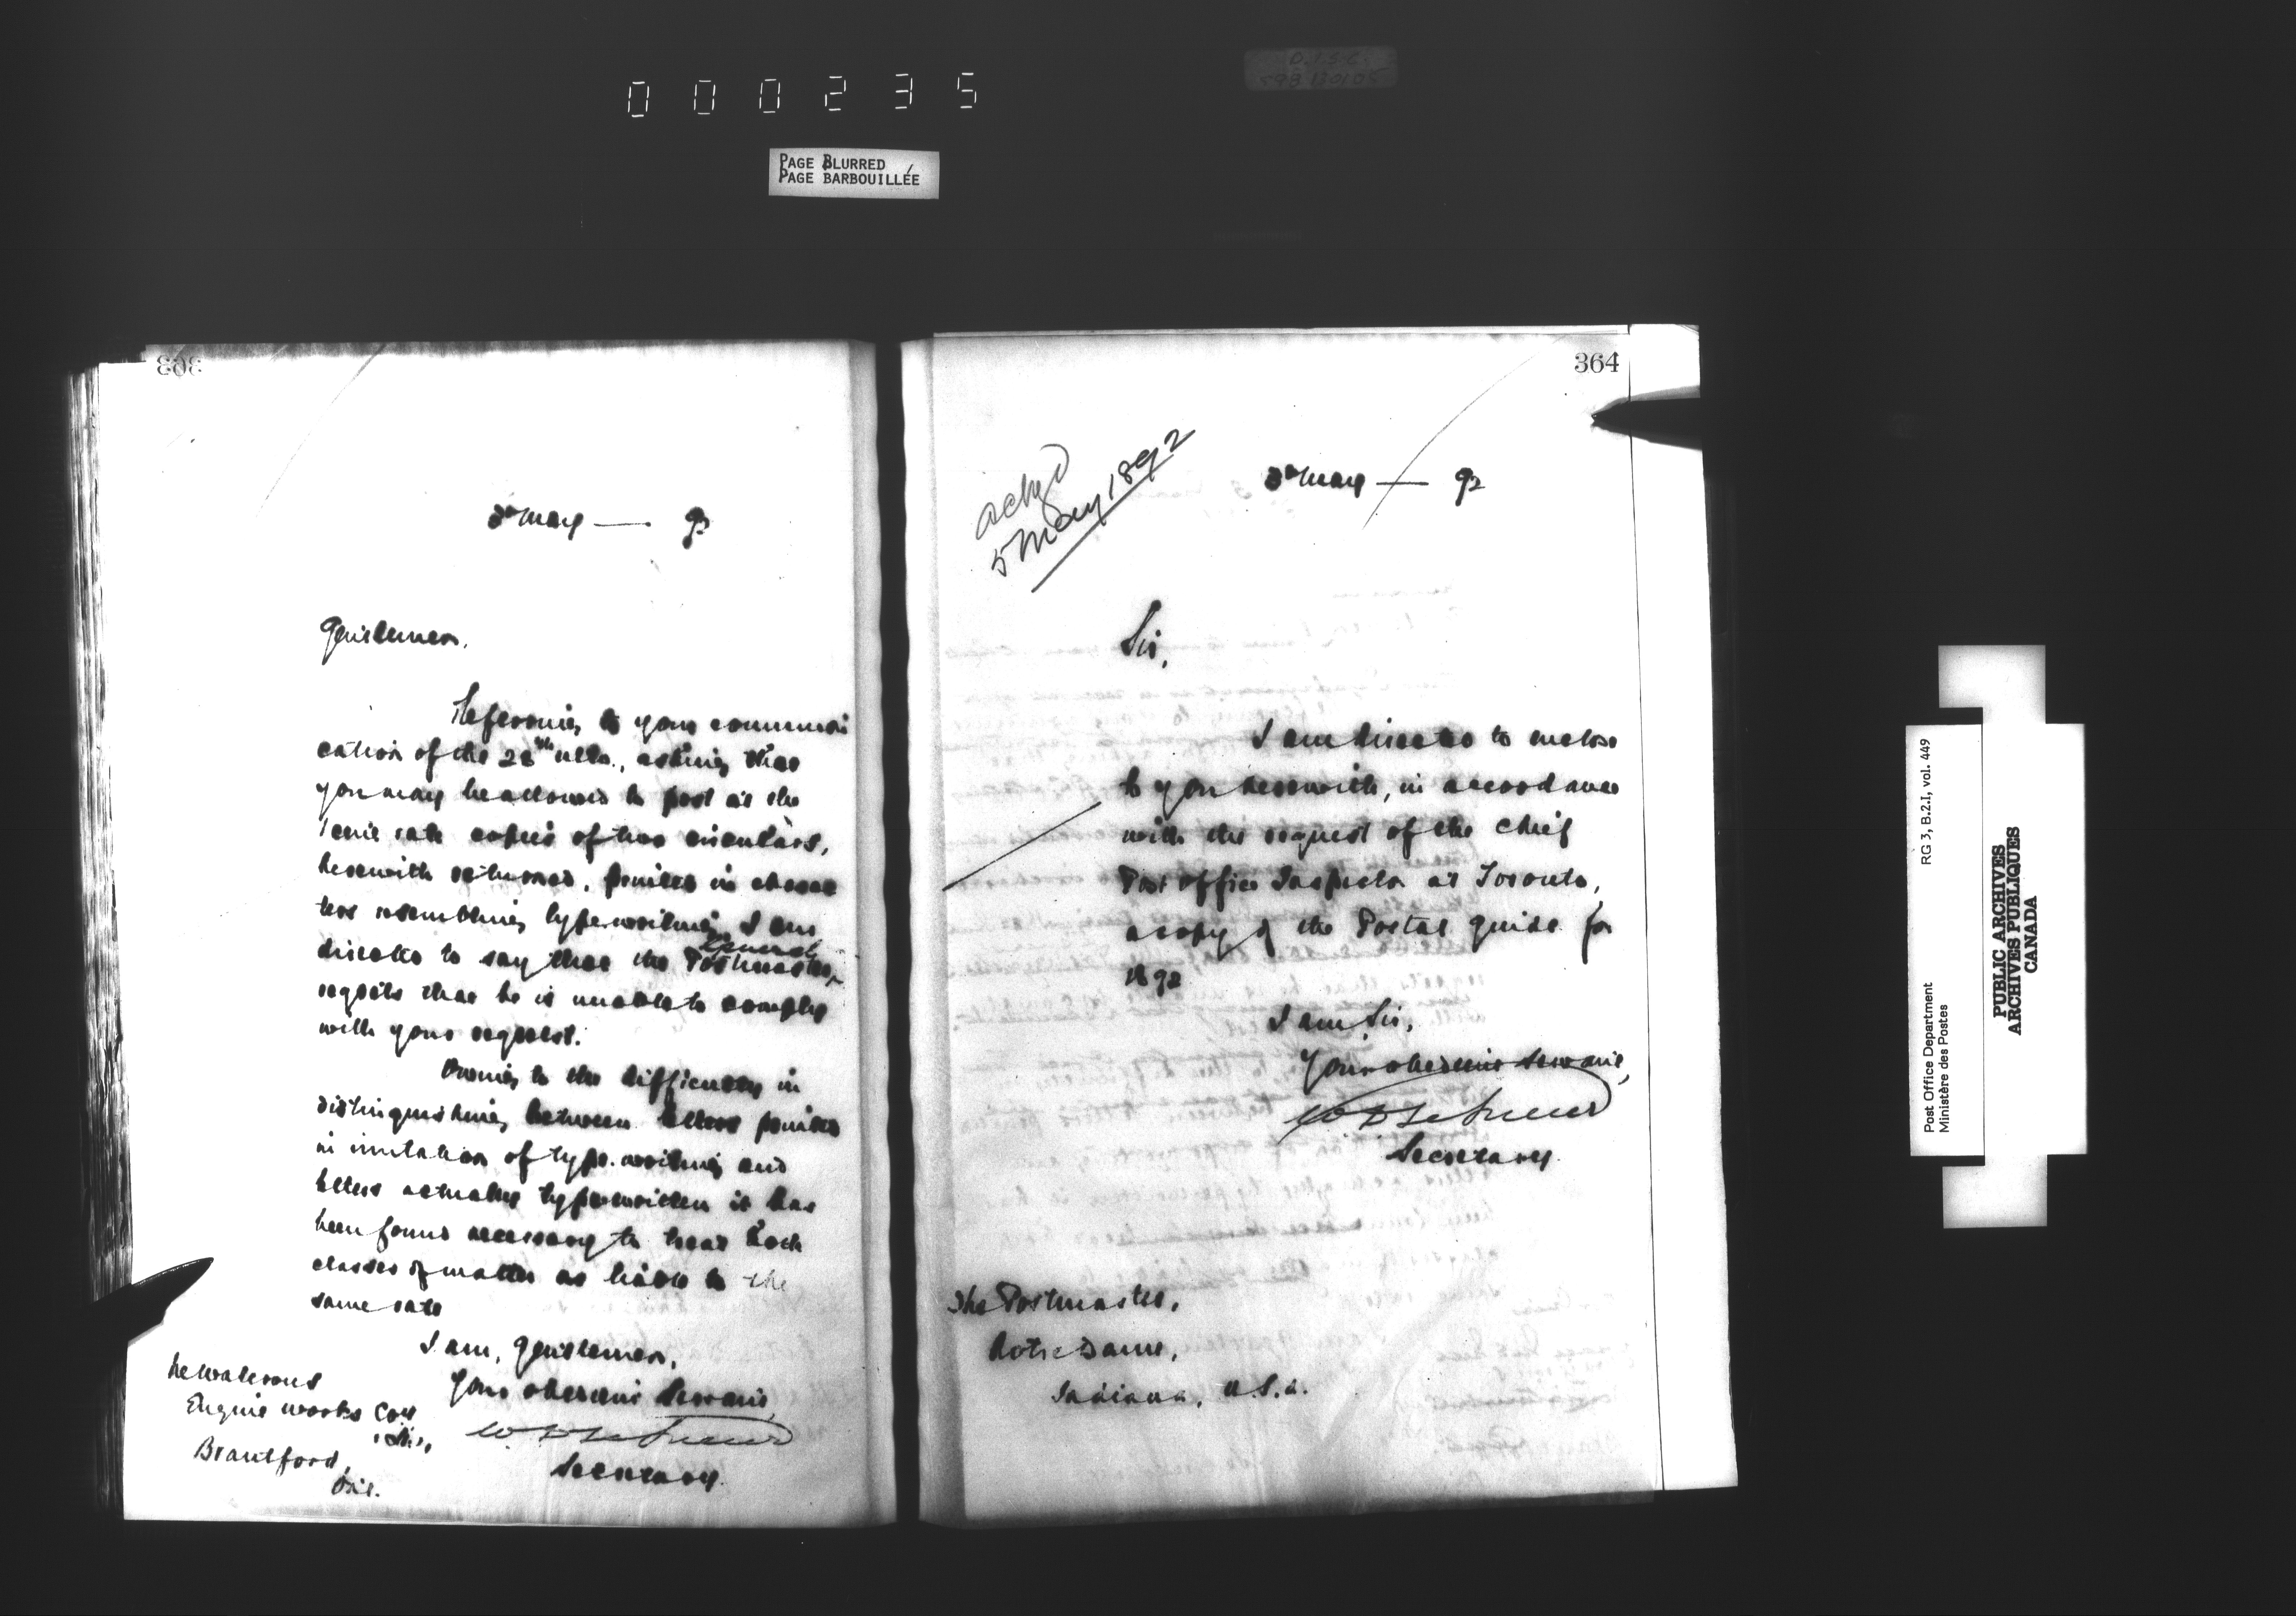 000235
PAGE BLURRED
PAGE BARBOUILLÉE
363
3rd May — 92
Gentlemen,
Referring to your communi
cation of the 28th ulto., asking that
you may be allowed to post at the
1 cent rate copies of two circulars,
herewith returned, printed in charac
ters resembling typewriting, I am
directed to say that the Postmaster
General
regrets that he is unable to comply
with your request.
Owing to the difficulty in
distinguishing between letters printed
in imitation of type-writing and
letters actually typewritten it has
been found necessary to treat both
classes of matter as liable to the
same rate
I am, Gentlemen,
Your obedient Servant,
W D LeSueur
Secretary.
The Waterous
Engine Works Coy
Brantford,
Ont.
364
ackgd
5 May 1892
3rd May — 92
Sir,
I am directed to enclose
to you herewith, in accordance
with the request of the Chief
Post Office Inspector at Toronto,
a copy of the Postal Guide for
1892
I am Sir,
Your obedient Servant,
W D LeSueur
Secretary.
The Postmaster,
Notre Dame,
Indiana, U.S.A.
Post Office Department
Ministère des Postes
RG 3, B.2.I, vol. 449
PUBLIC ARCHIVES
ARCHIVES PUBLIQUES
CANADA